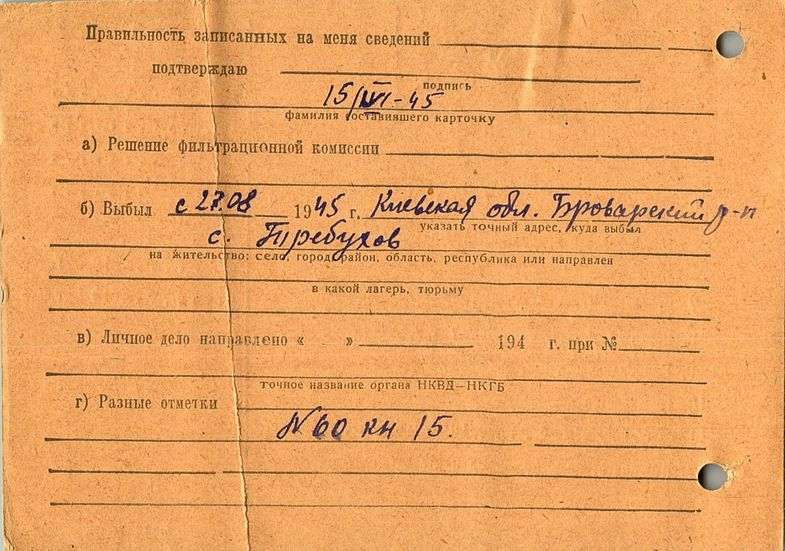 Правильность записанных на меня сведений
подтверждаю
подпись
15/VI-45
фамилия составившего карточку
а) Решение фильтрационной комиссии
б) Выбыл с 27.08 1945 г. Киевская обл. Броварский р-н
указать точный адрес, куда выбыл
с. Требухов
на жительство: село, город, район, область, республика или направлен
в какой лагерь, тюрьму
в) Личное дело направлено « » 194 г. при №
точное название органа НКВД—НКГБ
г) Разные отметки
N 60 кн 15.